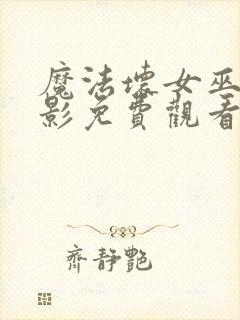 魔法壞女巫
影免費觀看
齊靜艷